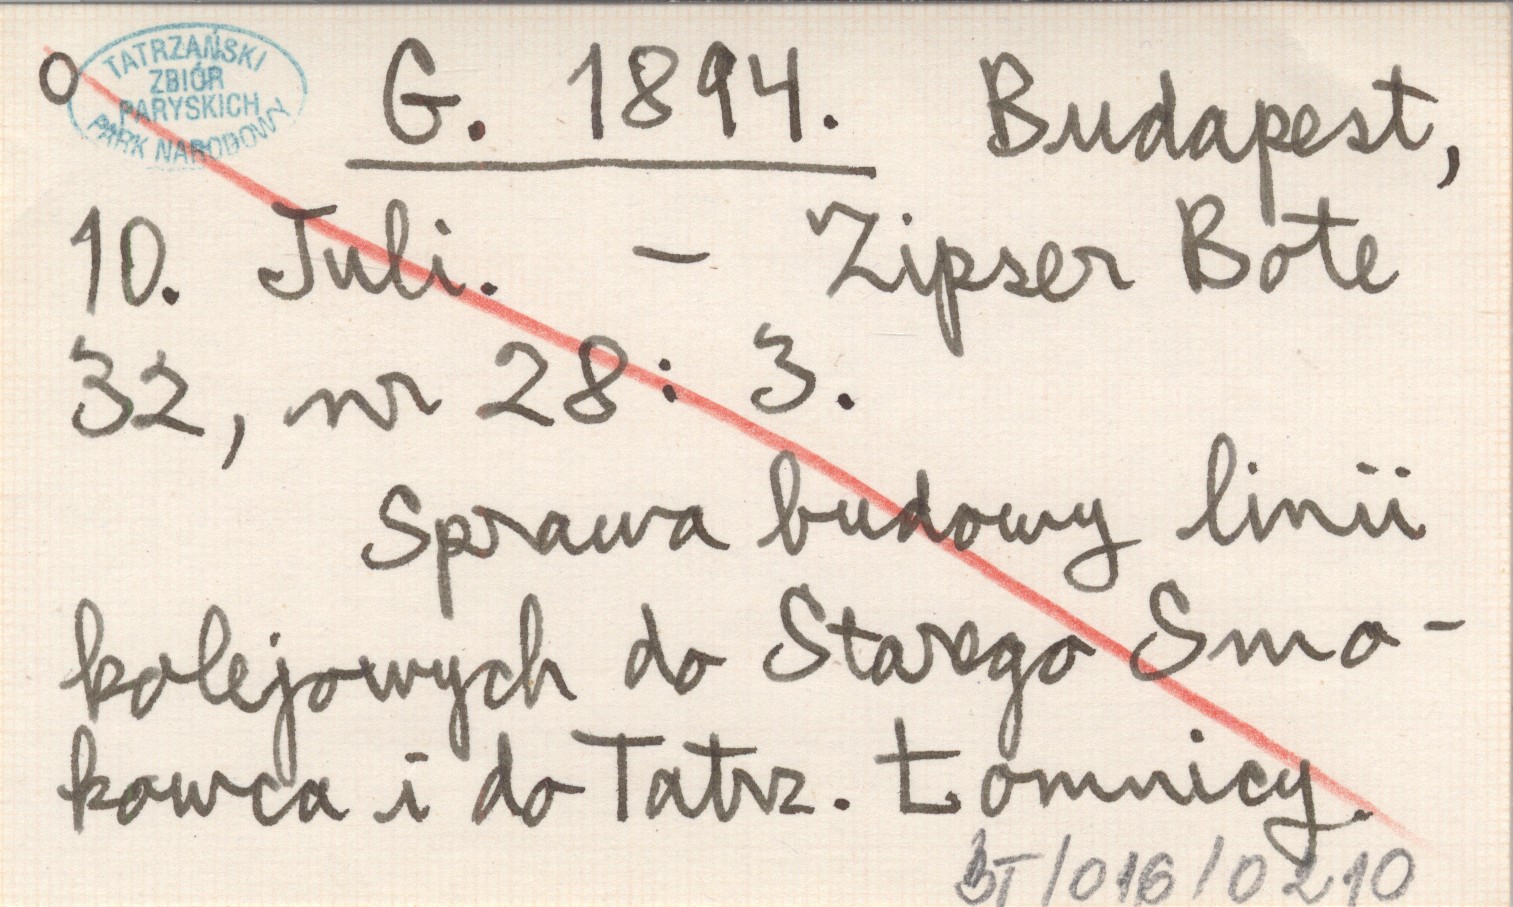 O
TATRZAŃSKI
ZBIÓR
PARYSKICH
PARK NARODOWY
G. 1894. Budapest,
10. Juli. – Zipser Bote
32, nr 28: 3.
Sprawa budowy linii
kolejowych do Starego Smo-
kowca i do Tatrz. Łomnicy.
BT/016/0210